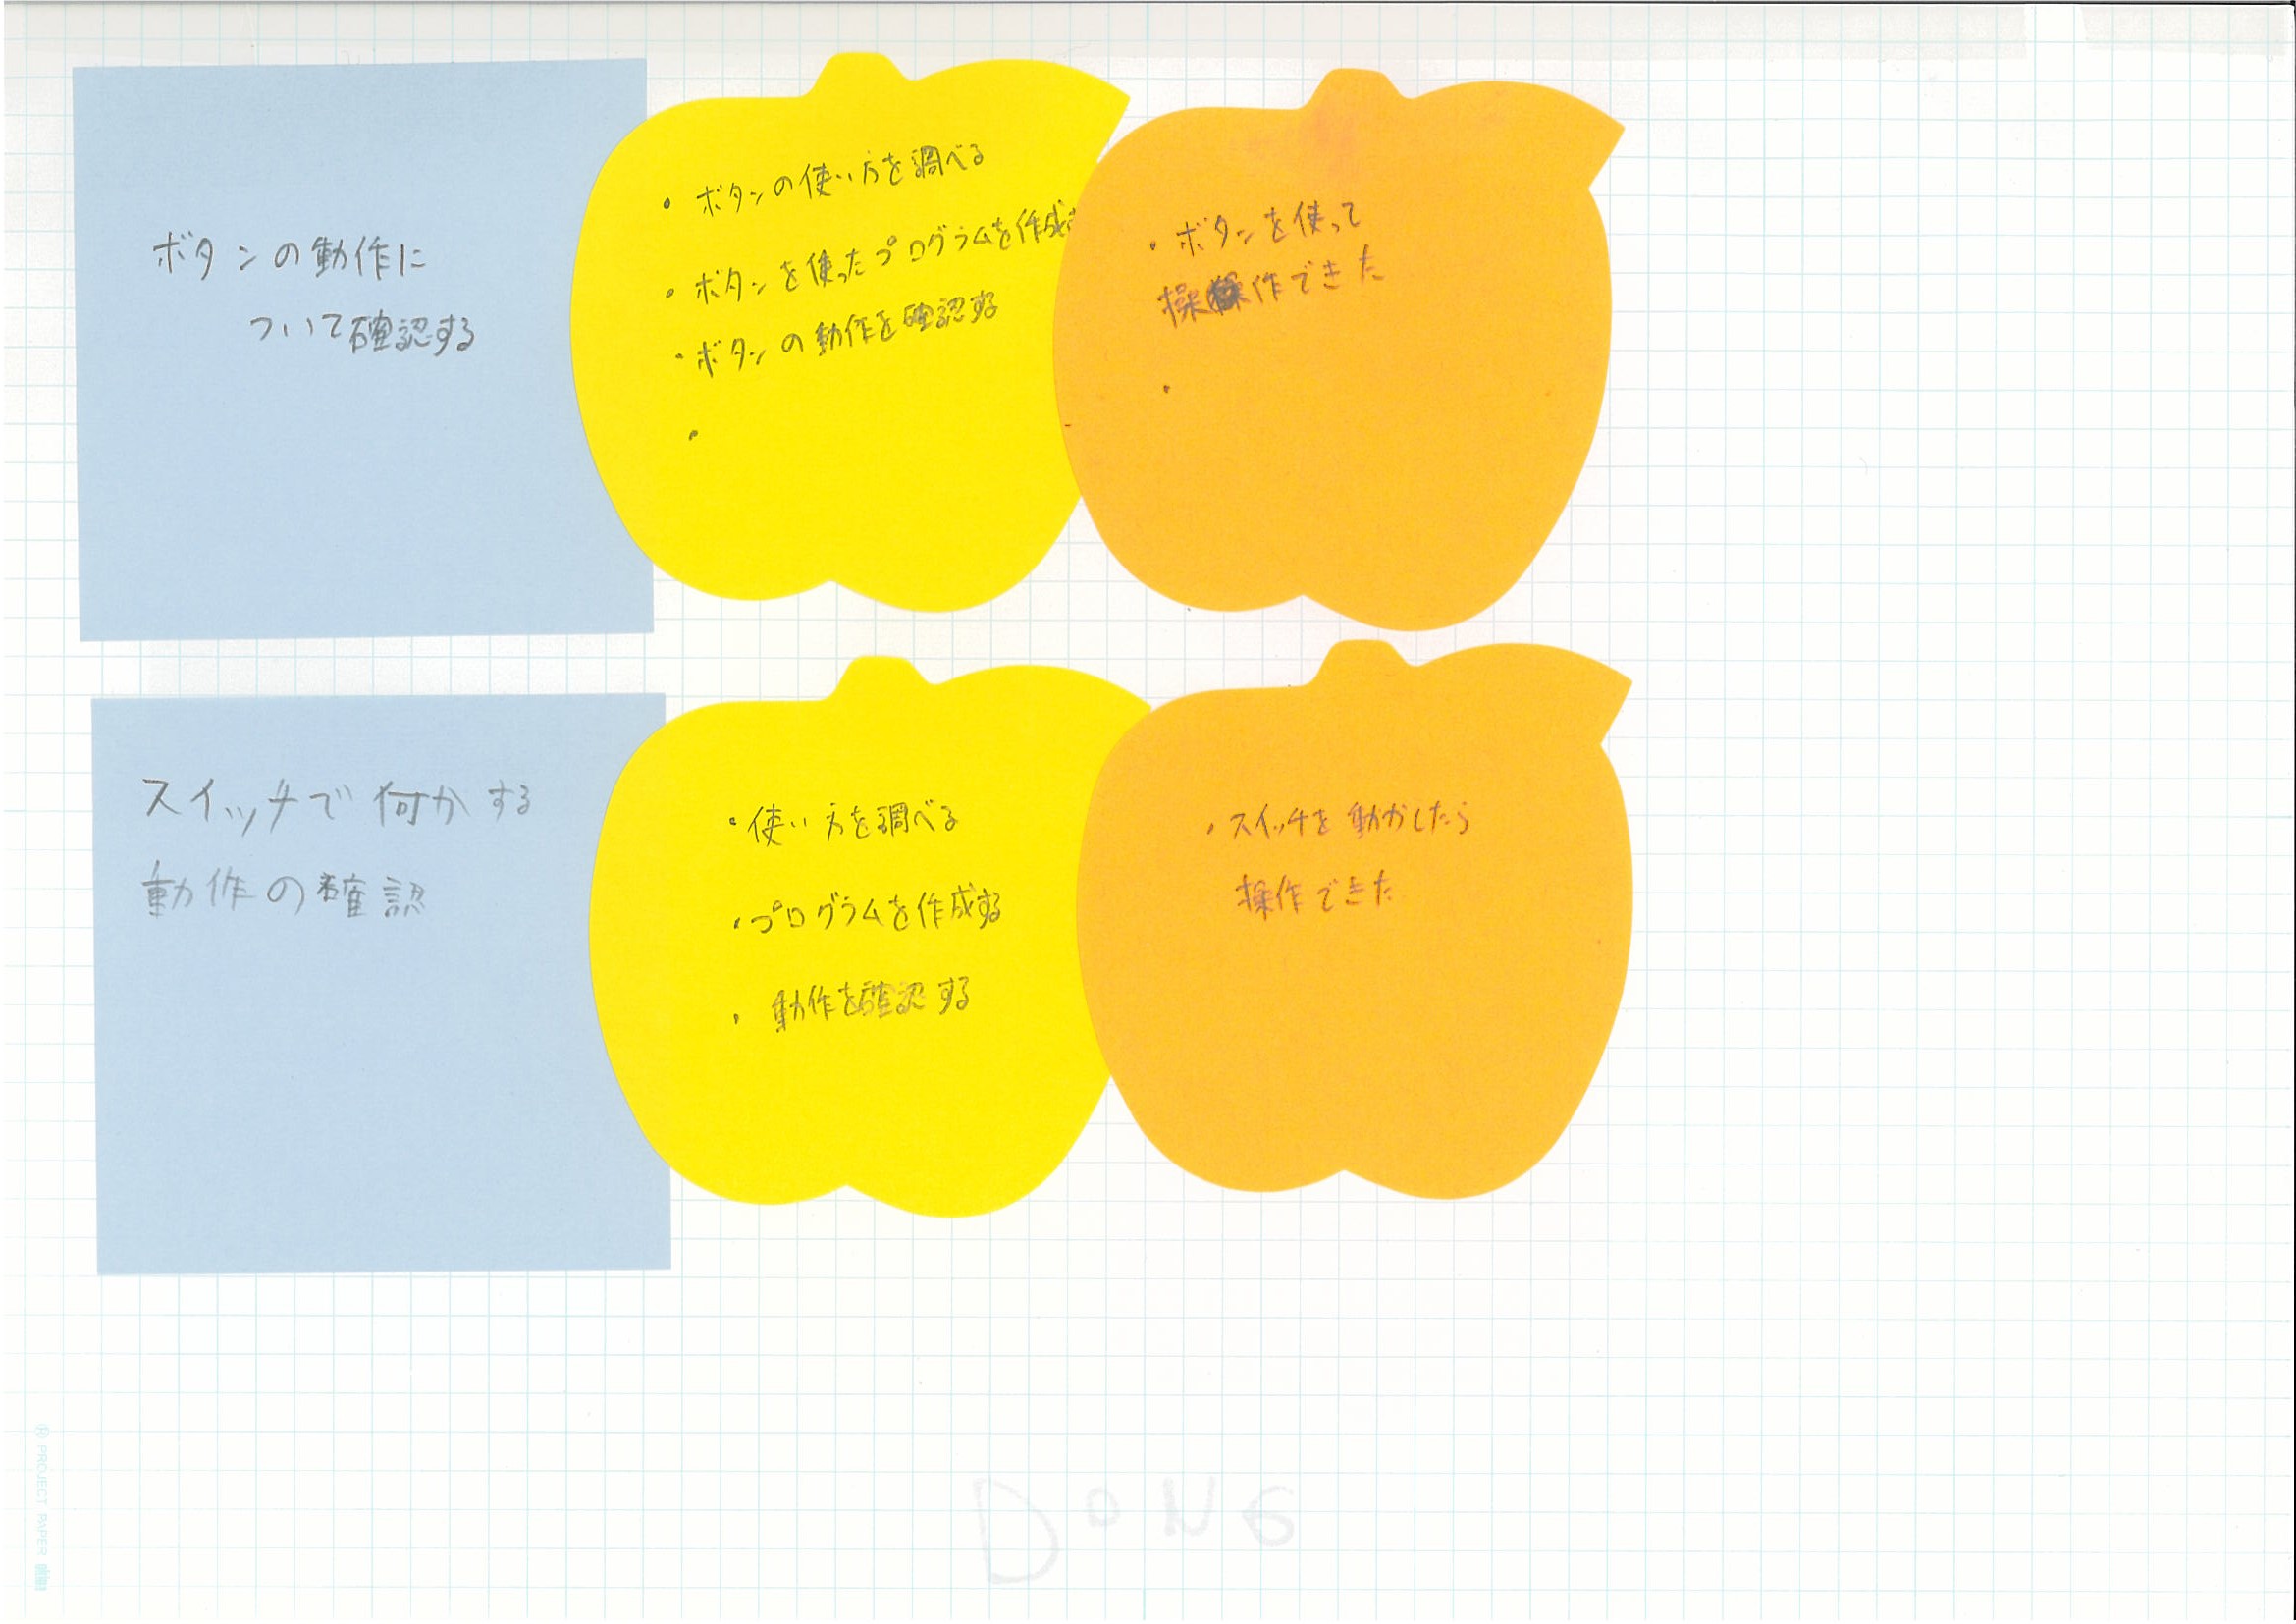 ボタンの動作に
ついて確認する
・ボタンの使い方を調べる
・ボタンを使ったプログラムを作成
・ボタンの動作を確認する
・
・ボタンを使って
操作できた
・
スイッチで何かする
動作の確認
・使い方を調べる
・プログラムを作成する
・動作を確認する
・スイッチを動かしたら
操作できた
DONE
PROJECT PAPER